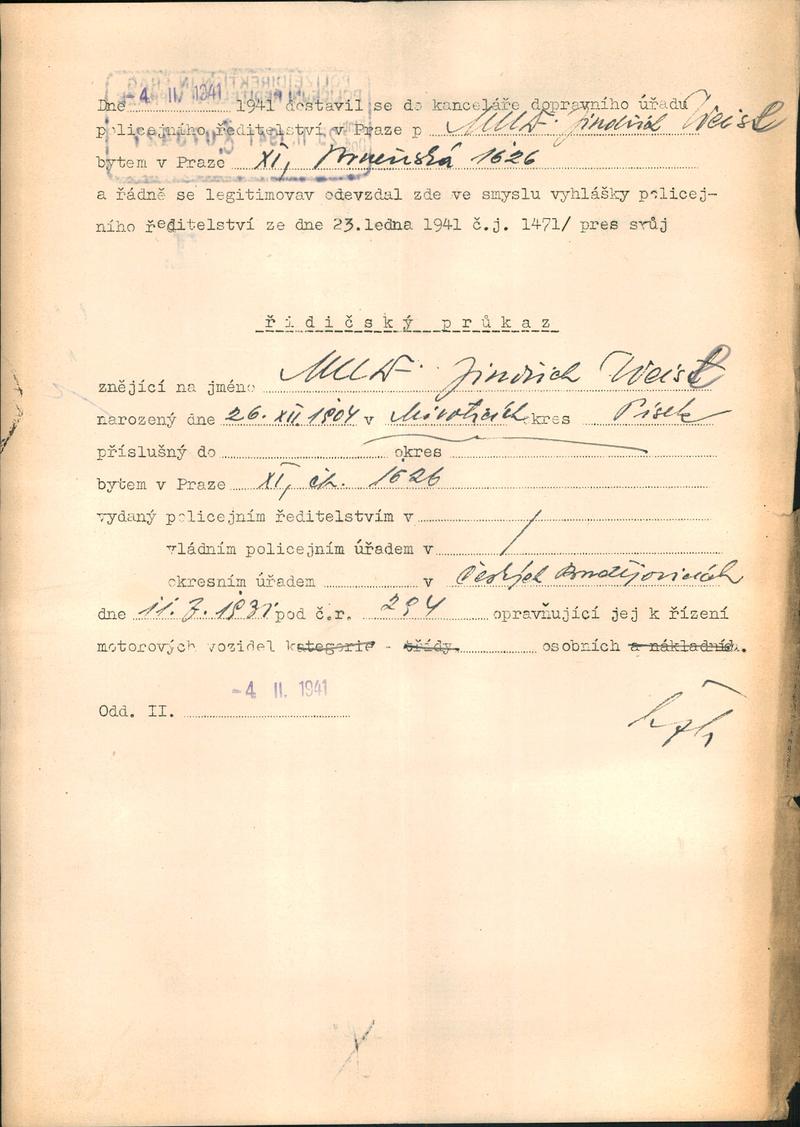 Dne -4. II. 1941 1941 dostavil se do kanceláře dopravního úřadu
policejního ředitelství v Praze p MUDr. Jindřich Weisl
bytem v Praze XI, 1626
a řádně se legitimovav odevzdal zde ve smyslu vyhlášky policej-
ního ředitelství ze dne 23.ledna 1941 č.j. 1471/ pres svůj
řidičský průkaz
znějící na jméno MUDr. Jindřich Weisl
narozený dne 26. XII. 1904 v Miroticích okres Písek
příslušný do okres
bytem v Praze XI, čh. 1626
vydaný policejním ředitelstvím v
vládním policejním úřadem v /
okresním úřadem v Českých Budějovicích
dne 11.7.1931 pod č.r. 294 opravňující jej k řízení
motorových vozidel kategorie - třídy. osobních a nákladních.
-4. II. 1941
Odd. II.